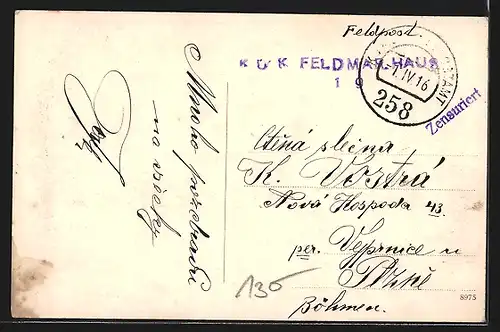 Feldpost.
K. U. K. FELDMAR.HAUS
1 9
1.IV.16
258
Zensuriert
Mnoho pozdravů
na všecky
Ctěná slečna
K. Vostrá
Nová Hospoda 43.
per. Vejprnice u
Plzně
Böhmen.
130
8975